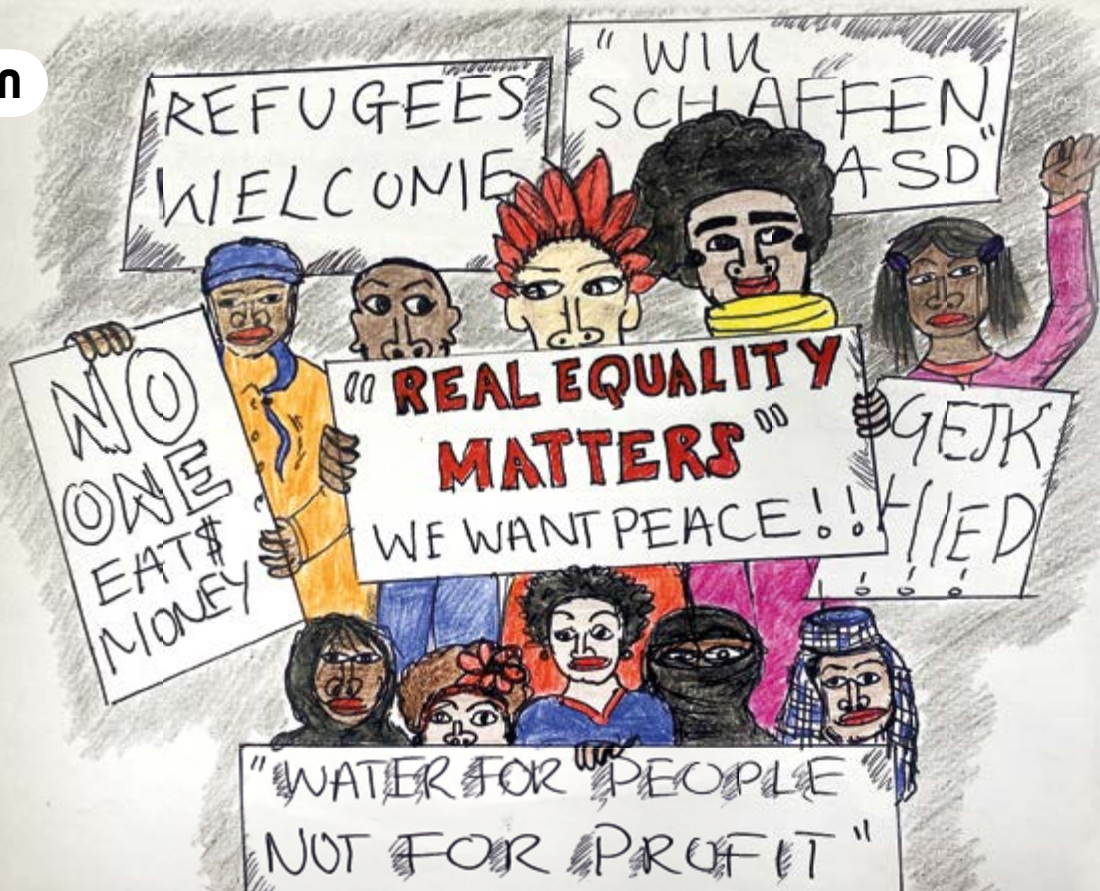 n
REFUGEES
WELCOME
" WIR
SCHAFFEN
ASD"
NO
ONE
EAT$
MONEY
"REAL EQUALITY
MATTERS"
WE WANT PEACE!!
GEJK
HIED
!!!
"WATER FOR PEOPLE
NOT FOR PROFIT"